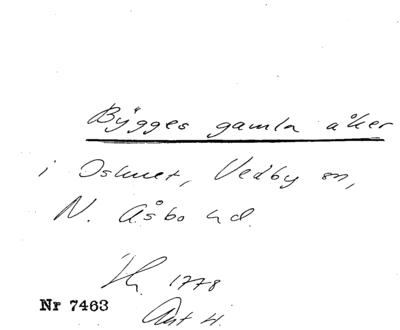 Bygges gamla åker
i Oshult, Vedby sn,
N. Åsbo hd.
1778
Nr 7463